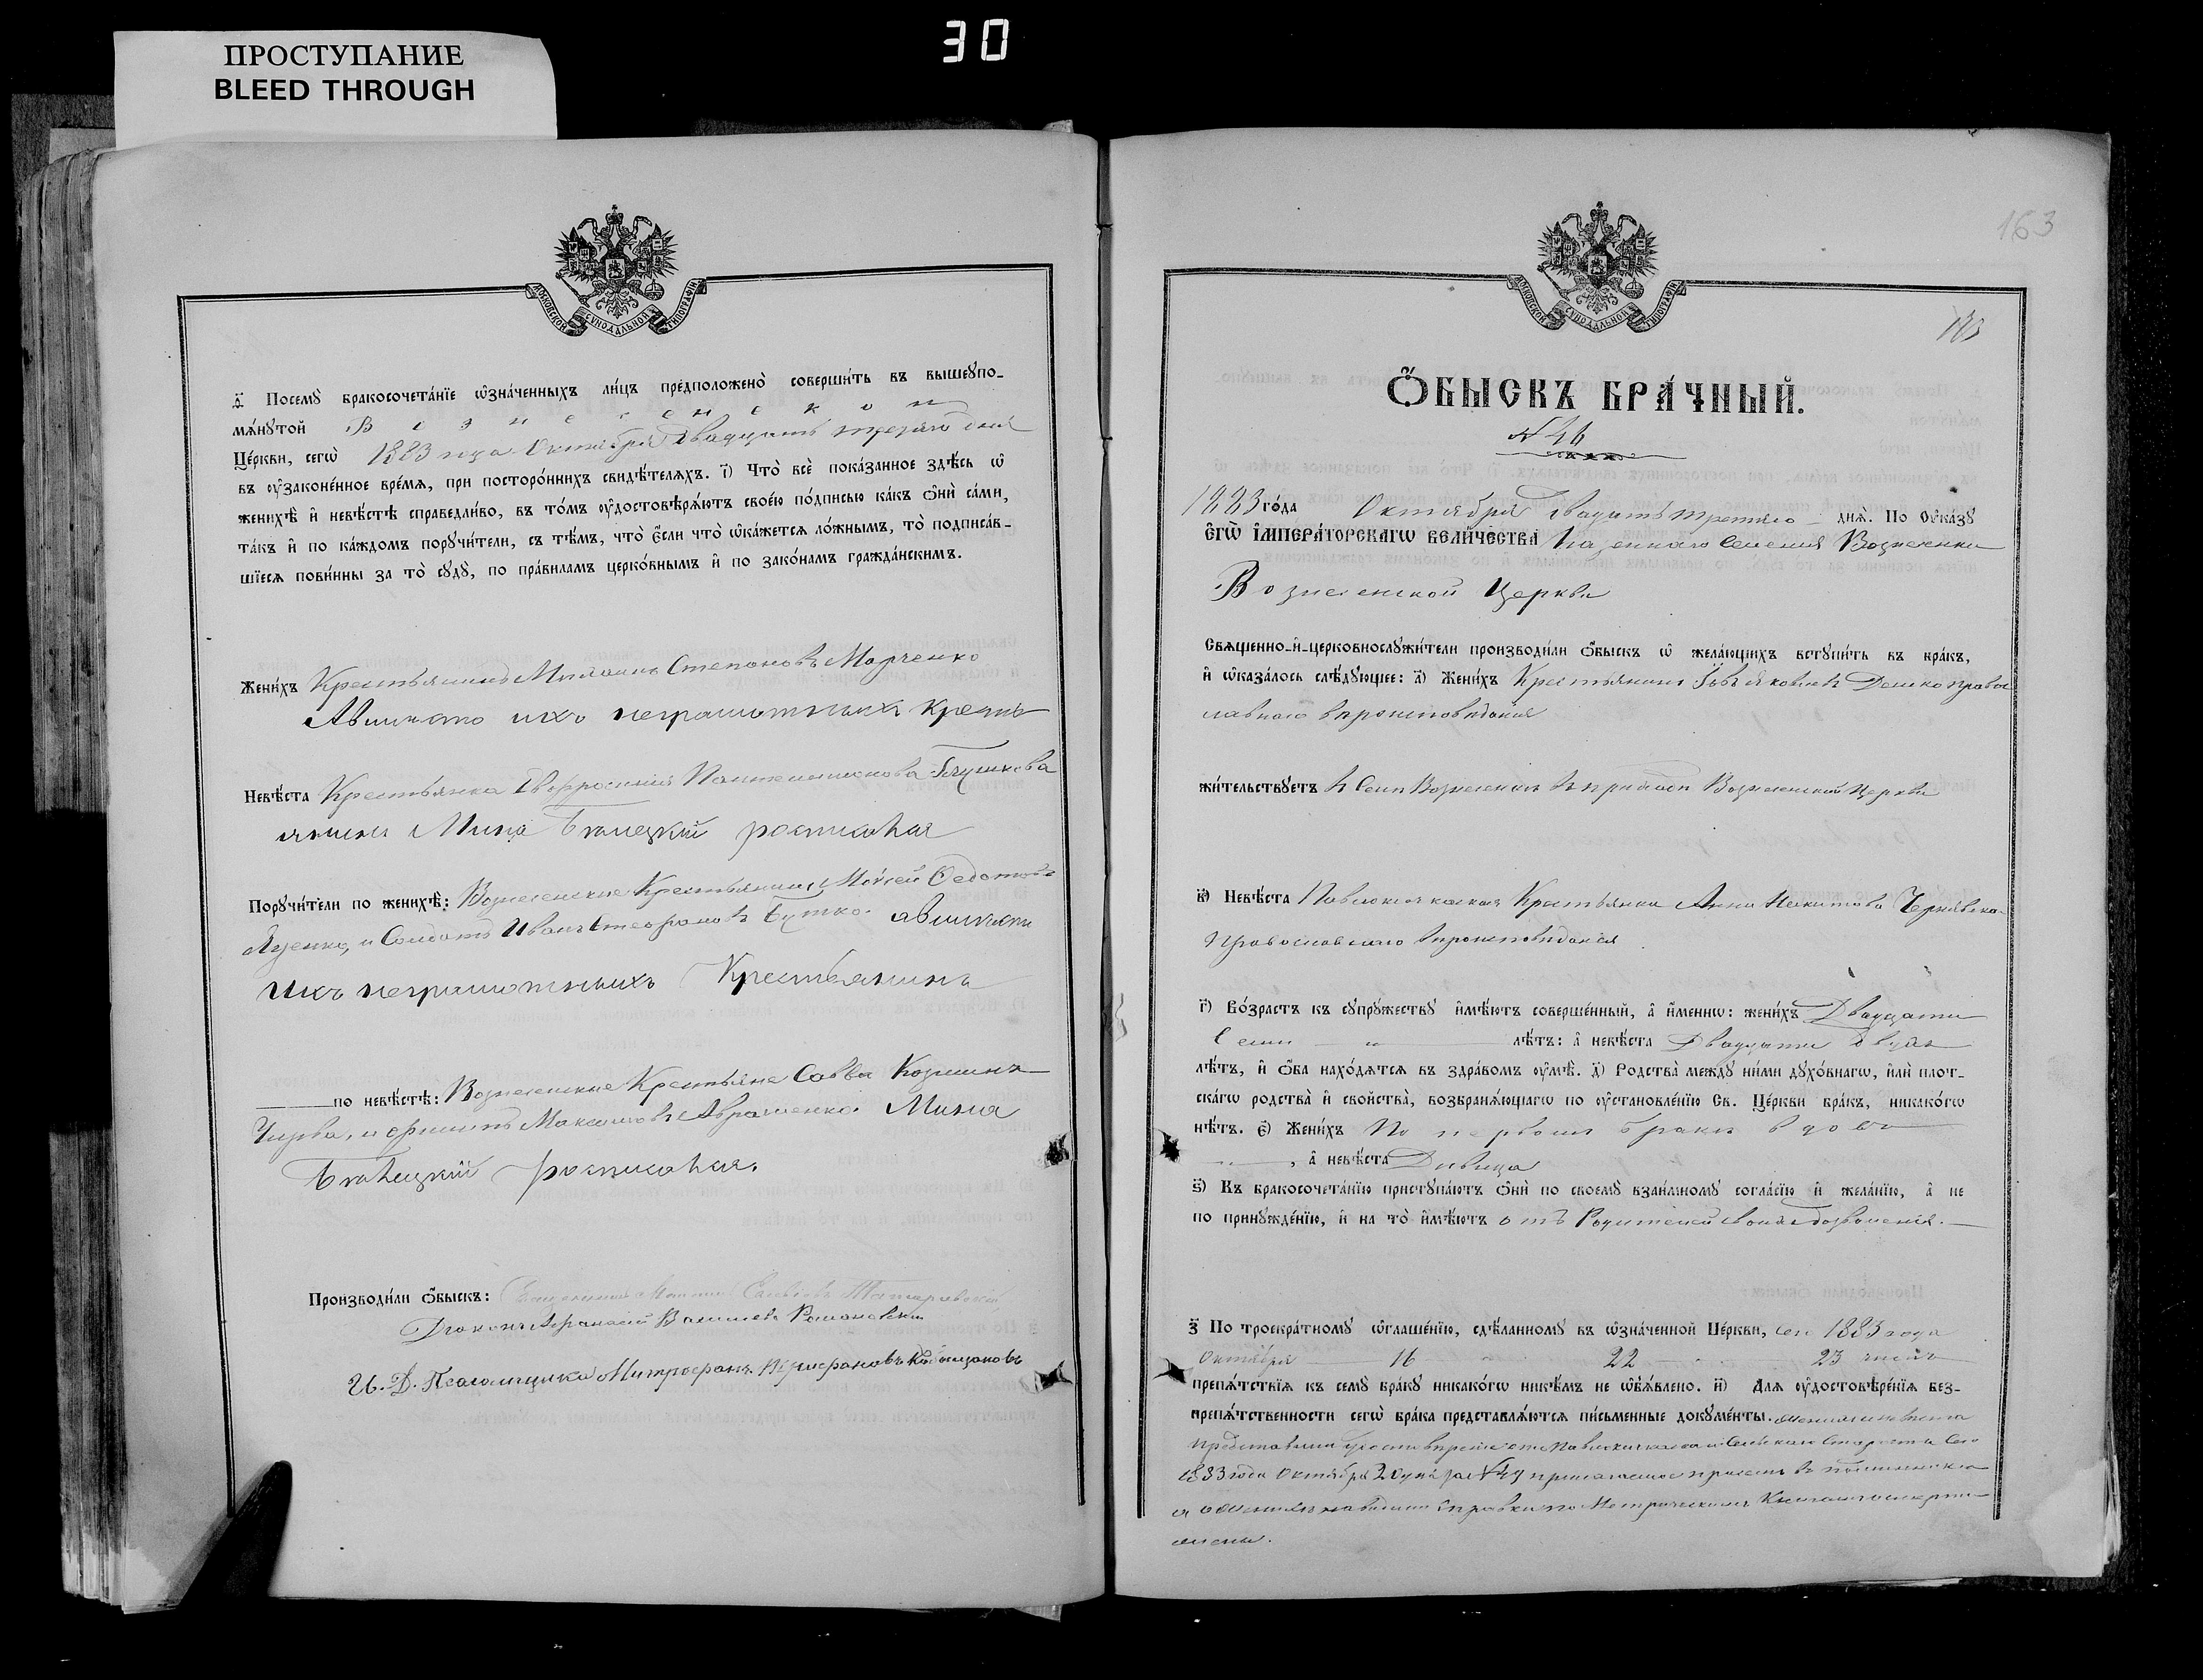 30
ПРОСТУПАНИЕ
BLEED THROUGH
МОСКОВСКОЙ СѴНОДАЛЬНОЙ ТИПОГРАФІИ
д҃ Посемꙋ бракосочета́нїе ѡ҆зна́ченныхъ ли́цъ предположено̀ соверши́ть въ вышеꙋпо-
мѧ́нꙋтой Вознесенской
Це́ркви, сегѡ̀ 1883 года Октября двадцать третьяго дня
въ ᲂу҆зако́ненное вре́мѧ, при посторо́ннихъ свидѣ́телѧхъ. і҃) Что̀ всѐ пока́занное здѣ́сь ѡ҆
женихѣ̀ и҆ невѣ́стѣ справедли́во, въ то́мъ ᲂу҆достовѣрѧ́ютъ свое́ю по́дписью ка́къ ѻ҆нѝ са́ми,
та́къ и҆ по ка́ждомъ порꙋчи́тели, съ тѣ́мъ, что̀ є҆́сли что̀ ѡ҆ка́жетсѧ ло́жнымъ, то̀ подписа́в-
шїесѧ пови́нны за то̀ сꙋдꙋ̀, по пра́виламъ церко́внымъ и҆ по зако́намъ гражда́нскимъ.
Жени́хъ Крестьянинъ Степановъ Марченко
а вместо ихъ неграмотныхъ крест
Невѣ́ста Крестьянка Евфросинія Пантелимонова Глушкова
янинъ Мина Билецкій росписался
Порꙋчи́тели по женихѣ̀: Вознесенские Крестьянинъ Мойсей Федотовъ
Яценко, и Солдатъ Иванъ Стефановъ Бутко. а вместо
ихъ неграмотныхъ Крестьянинъ
по невѣ́стѣ: Вознесенские Крестьяне Савва Козминъ
Чирва, и Ефимъ Максимовъ Авраменко. Мина
Билецкій росписался.
Производи́ли ѻ҆́быскъ: Священникъ
Діаконъ Афанасій Васильевъ Романовскій
И. Д. Псаломщика Митрофанъ
163
163
Ѻ҆́БЫСКЪ БРА́ЧНЫЙ.
№ 46
1883 го́да Октября двадцать третьяго днѧ̀. По ᲂу҆ка́зꙋ
Є҆ГѠ̀ І҆МПЕРА́ТОРСКАГѠ ВЕЛИ́ЧЕСТВА Казеннаго Селенія Вознесенки
Вознесенской Церкви
Сщ҃енно-и҆-церковнослꙋжи́тели производи́ли ѻ҆́быскъ ѡ҆ жела́ющихъ встꙋпи́ть въ бра́къ,
и҆ ѡ҆каза́лось слѣ́дꙋющее: а҃) Жени́хъ Крестьянинъ Іовъ Яковлевъ Дешко право
славнаго вероисповеданія
жи́тельствꙋетъ в Селе Вознесенке в приходе Вознесенской Церкви
в҃) Невѣ́ста Крестьянка Анна Никитова Чернявская
Православнаго вероисповеданія
г҃) Во́зрастъ къ сꙋпрꙋ́жествꙋ и҆мѣ́ютъ соверше́нный, а҆ и҆́менно: жени́хъ Двадцати
Семи лѣ́тъ: а҆ невѣ́ста Двадцати двухъ
лѣ́тъ, и҆ ѻ҆́ба нахо́дѧтсѧ въ здра́вомъ ᲂу҆мѣ̀. д҃) Родства̀ междꙋ ни́ми дꙋхо́внагѡ, и҆лѝ плот-
ска́гѡ родства̀ и҆ свойства̀, возбранѧ́ющагѡ по ᲂу҆становле́нїю Св. Це́ркви бра́къ, никако́гѡ
нѣ́тъ. є҃) Жени́хъ По первомъ браке вдовъ
, а҆ невѣ́ста Девица
ѕ҃) Къ бракосочета́нїю пристꙋпа́ютъ ѻ҆нѝ по своемꙋ̀ взаи́мномꙋ согла́сїю и҆ жела́нїю, а҆ не
по принꙋжде́нїю, и҆ на то̀ и҆мѣ́ютъ отъ Родителей своихъ дозволенія.
з҃ По троекра́тномꙋ ѡ҆глаше́нїю, сдѣ́ланномꙋ въ ѡ҆зна́ченной Це́ркви, сего 1883 года
Октября 16 22 23 числъ
препѧ́тствїѧ къ семꙋ̀ бра́кꙋ никако́гѡ никѣ́мъ не ѡ҆б̾ѧ́влено. и҃) Длѧ ᲂу҆достовѣре́нїѧ без-
препѧ́тственности сегѡ̀ бра́ка представлѧ́ютсѧ пи́сьменные докꙋме́нты.
Сельскаго Старосты Сего
1883 года Октября 20 дня за № 49
справки по Метрическимъ Книгамъ